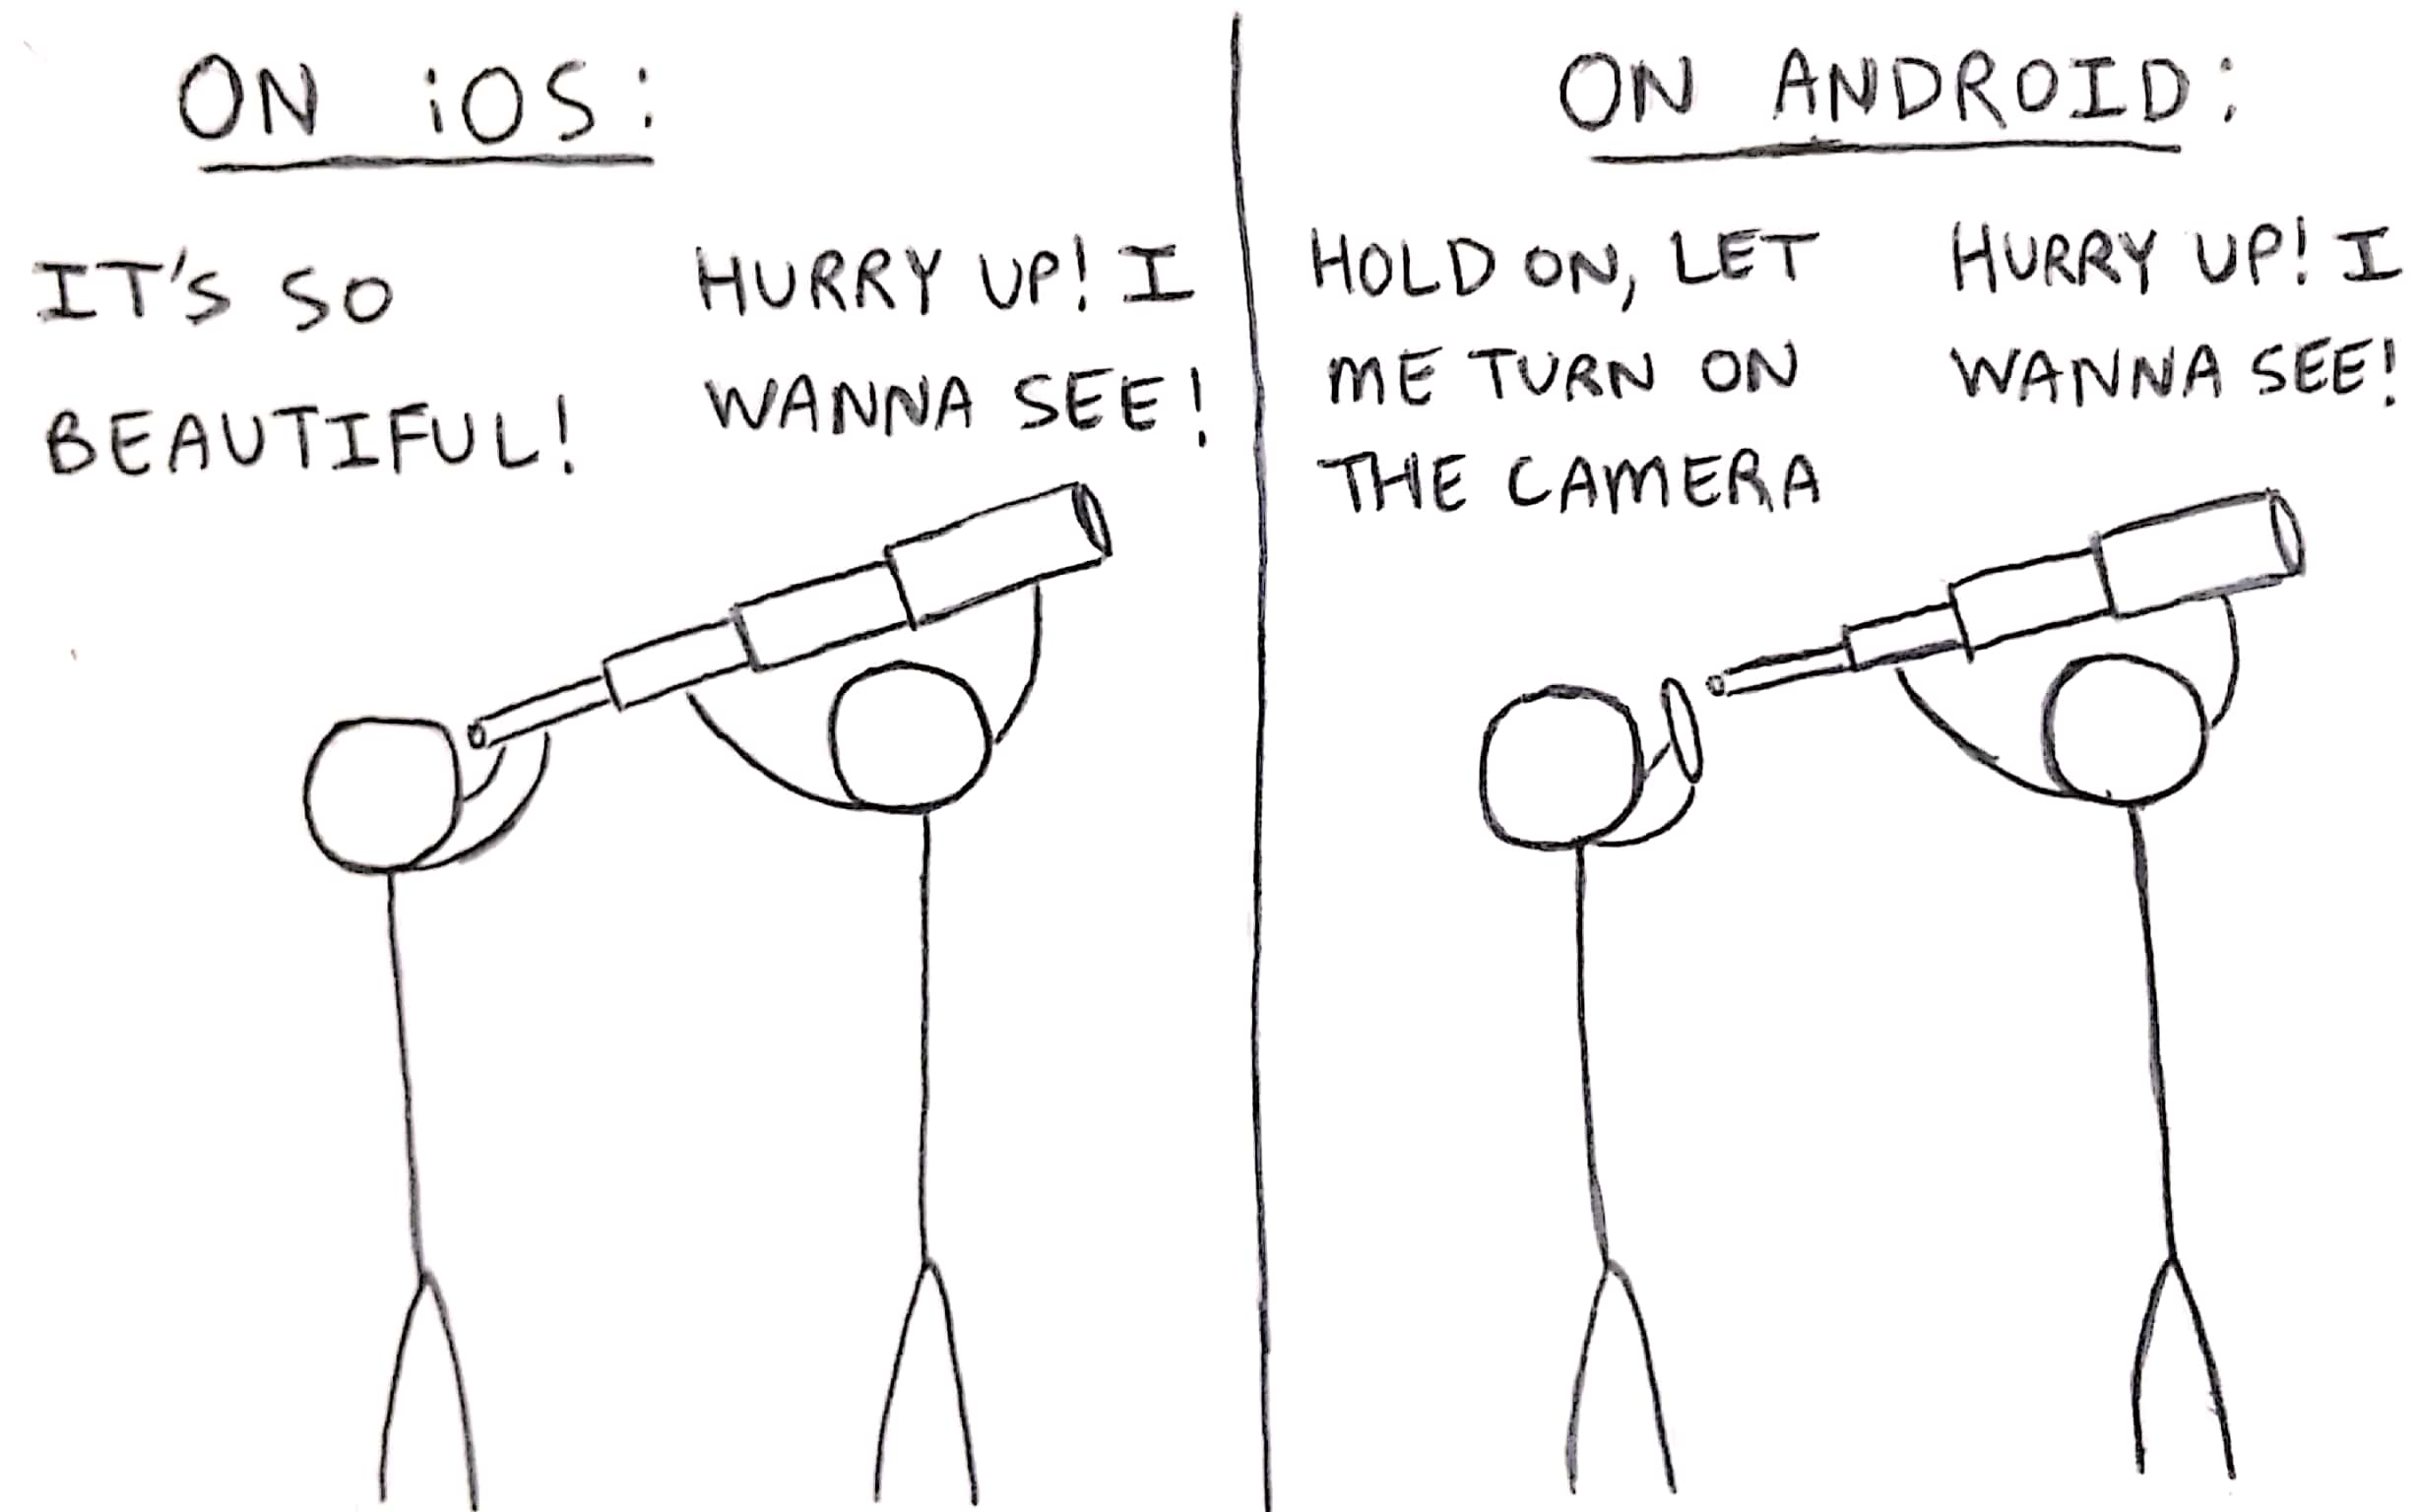 ON iOS:
IT'S SO
BEAUTIFUL!
HURRY UP! I
WANNA SEE!
ON ANDROID:
HOLD ON, LET
ME TURN ON
THE CAMERA
HURRY UP! I
WANNA SEE!